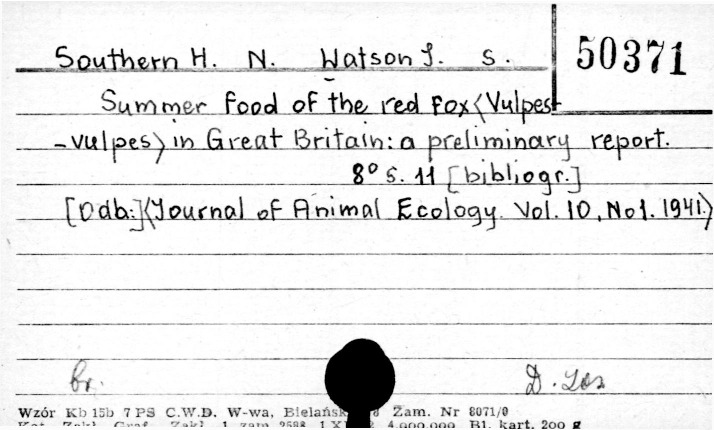 Southern H. N. Watson J. S. 50371
Summer food of the red fox (Vulpes
-vulpes) in Great Britain: a preliminary report.
8° s. 11 [bibliogr.]
[Odb.] (Journal of Animal Ecology. Vol. 10, No 1. 1941.)
br. D. Los
Wzór Kb 15b 7 PS C.W.D. W-wa, Bielańsk Zam. Nr 8071/0
Kat. Zakł. Graf. Zakł. 1 zam 2588 4.000.000 Bl. kart. 200 g